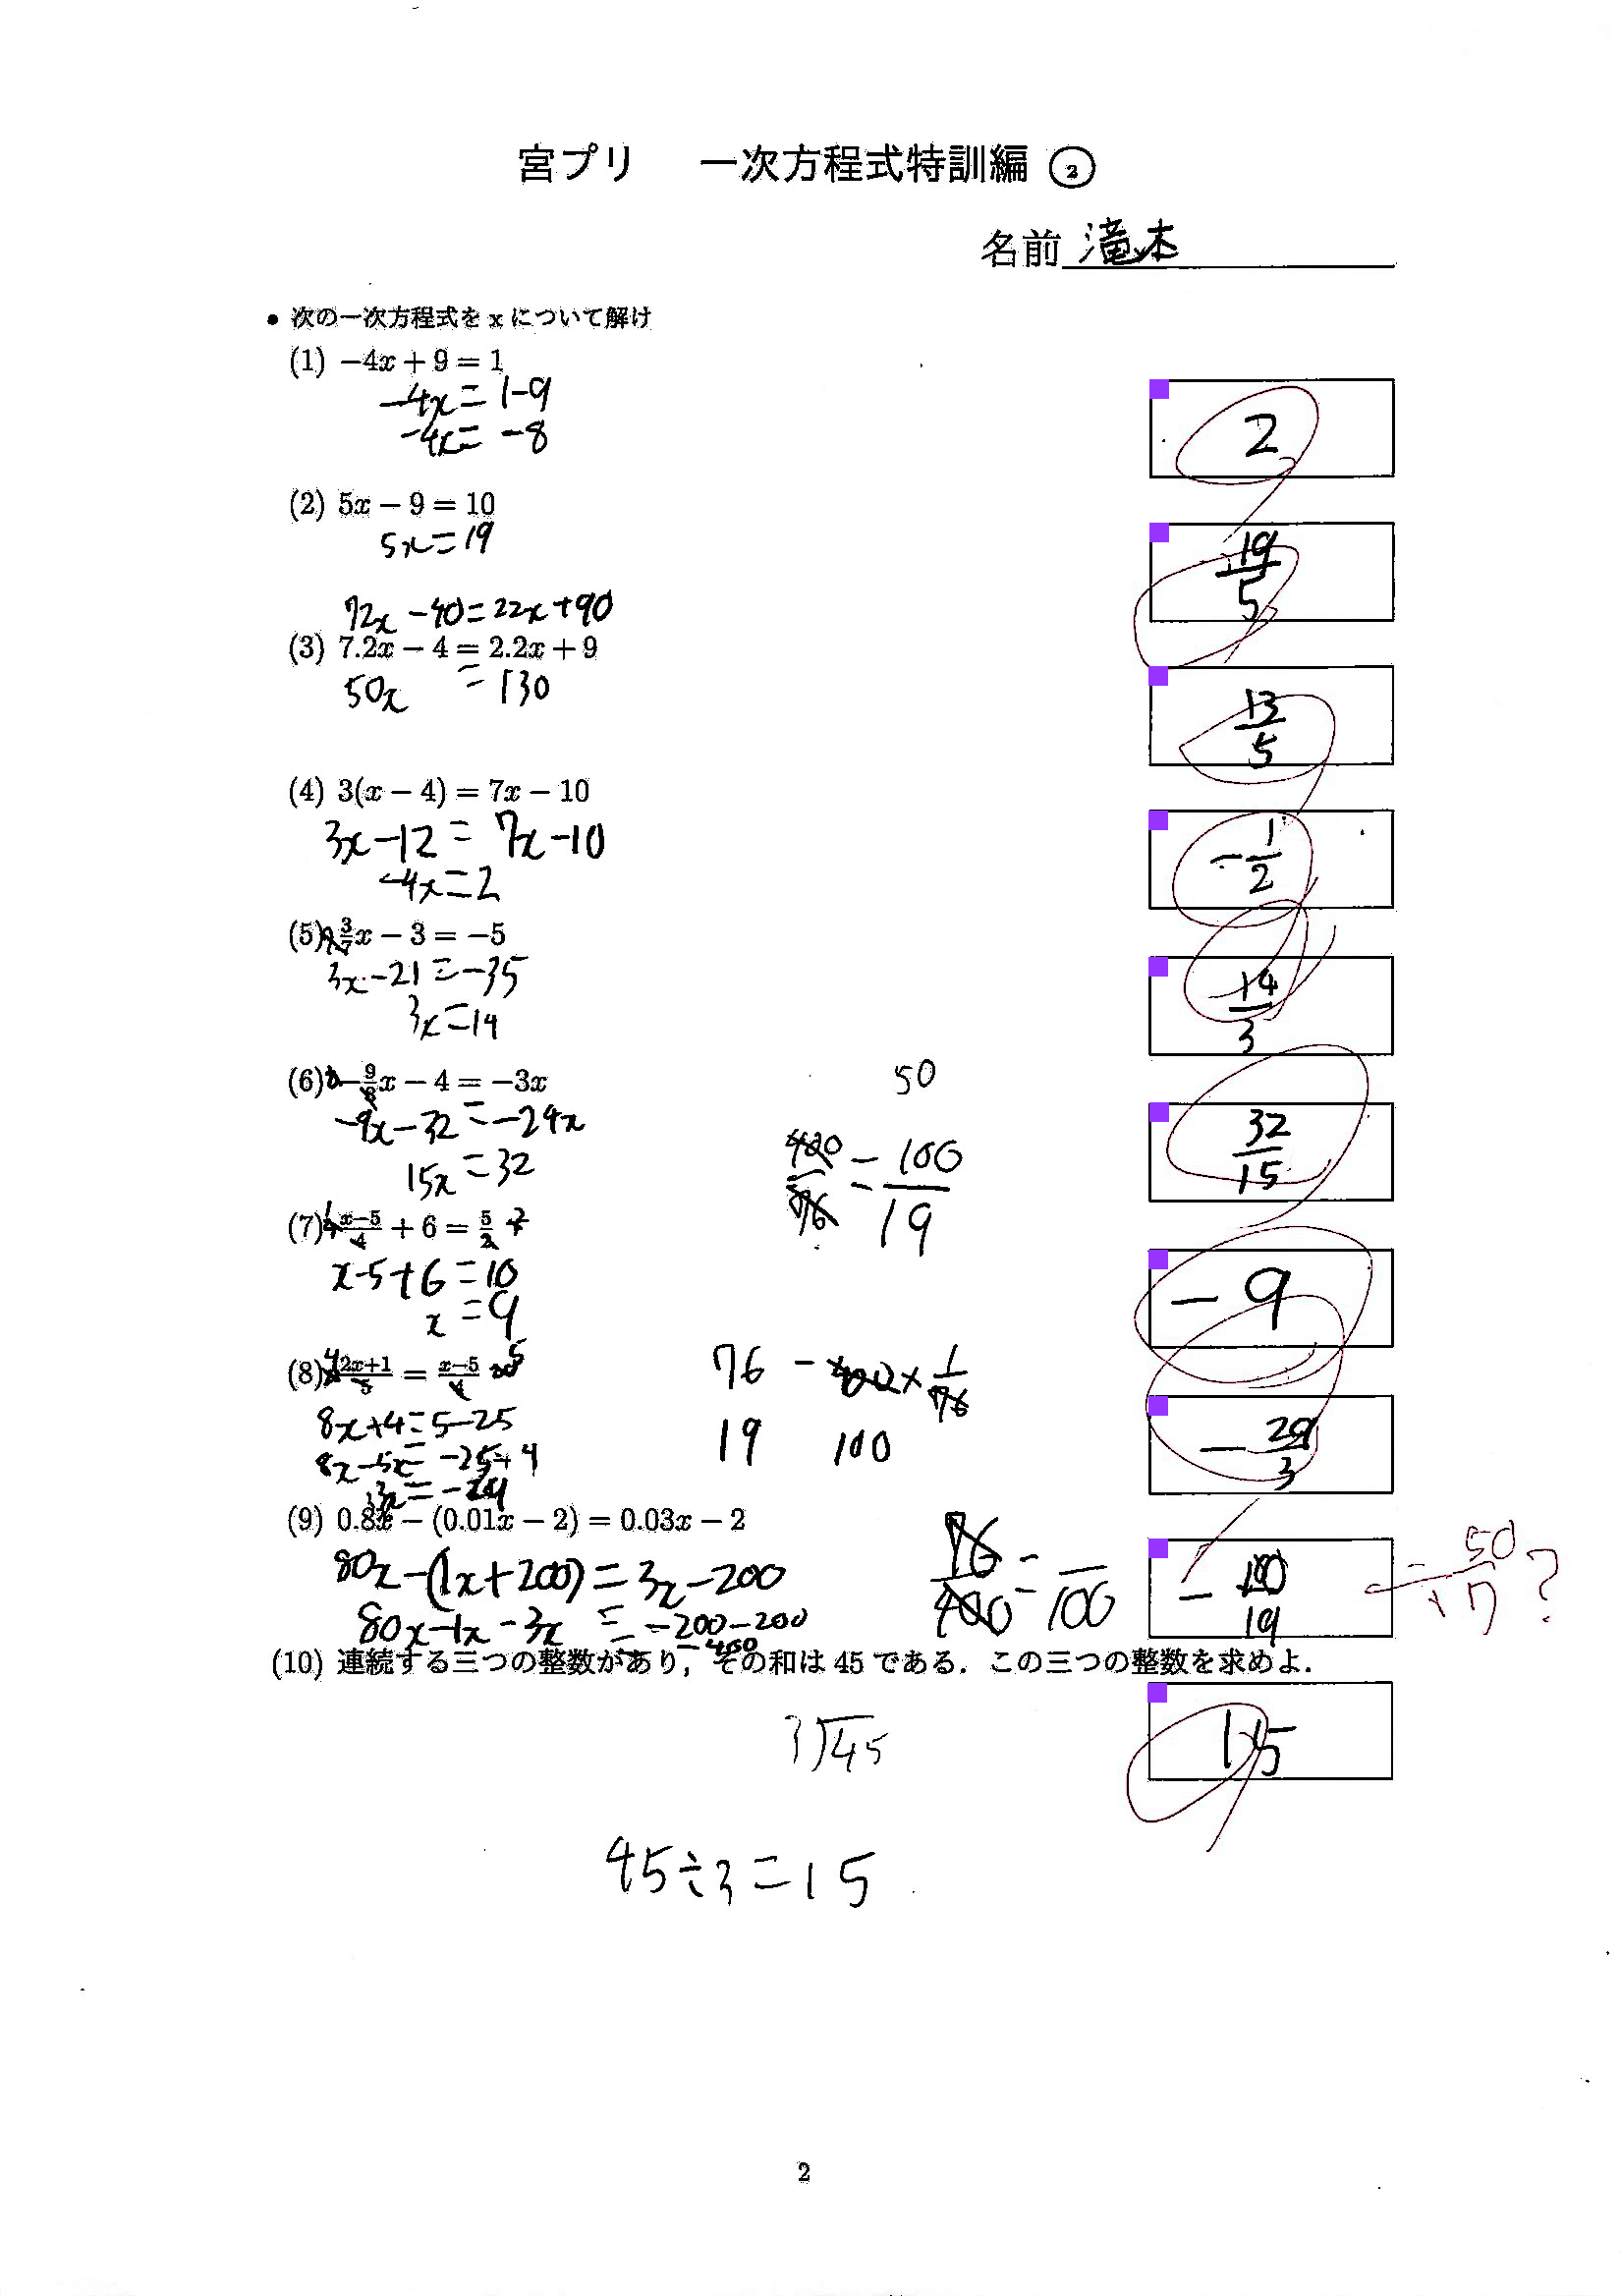 宮プリ 一次方程式特訓編 ②
名前 滝本
• 次の一次方程式を x について解け
(1) −4x + 9 = 1
-4x = 1-9
-4x = -8
2
(2) 5x − 9 = 10
5x = 19
19/5
72x - 40 = 22x + 90
(3) 7.2x − 4 = 2.2x + 9
50x = 130
13/5
(4) 3(x − 4) = 7x − 10
3x - 12 = 7x - 10
-4x = 2
- 1/2
(5) 3/7 x − 3 = −5
3x - 21 = -35
3x = 14
14/3
(6) −9/8 x − 4 = −3x
-9x - 32 = -24x
15x = 32
50
400/76 = 100/19
32/15
(7) (x−5)/4 + 6 = 5/2
x - 5 + 6 = 10
x = 9
- 9
(8) (2x+1)/5 = (x−5)/4
8x + 4 = 5 - 25
8x - 5x = -25 + 4
3x = -29
76 - 400 × 1/76
19 100
- 29/3
(9) 0.8x − (0.01x − 2) = 0.03x − 2
80x - (1x + 200) = 3x - 200
80x - 1x - 3x = -200 - 200
- 400
76/400 = /100
- 100/19
- 50/17 ?
(10) 連続する三つの整数があり，その和は 45 である．この三つの整数を求めよ．
3)45
15
45 ÷ 3 = 15
2